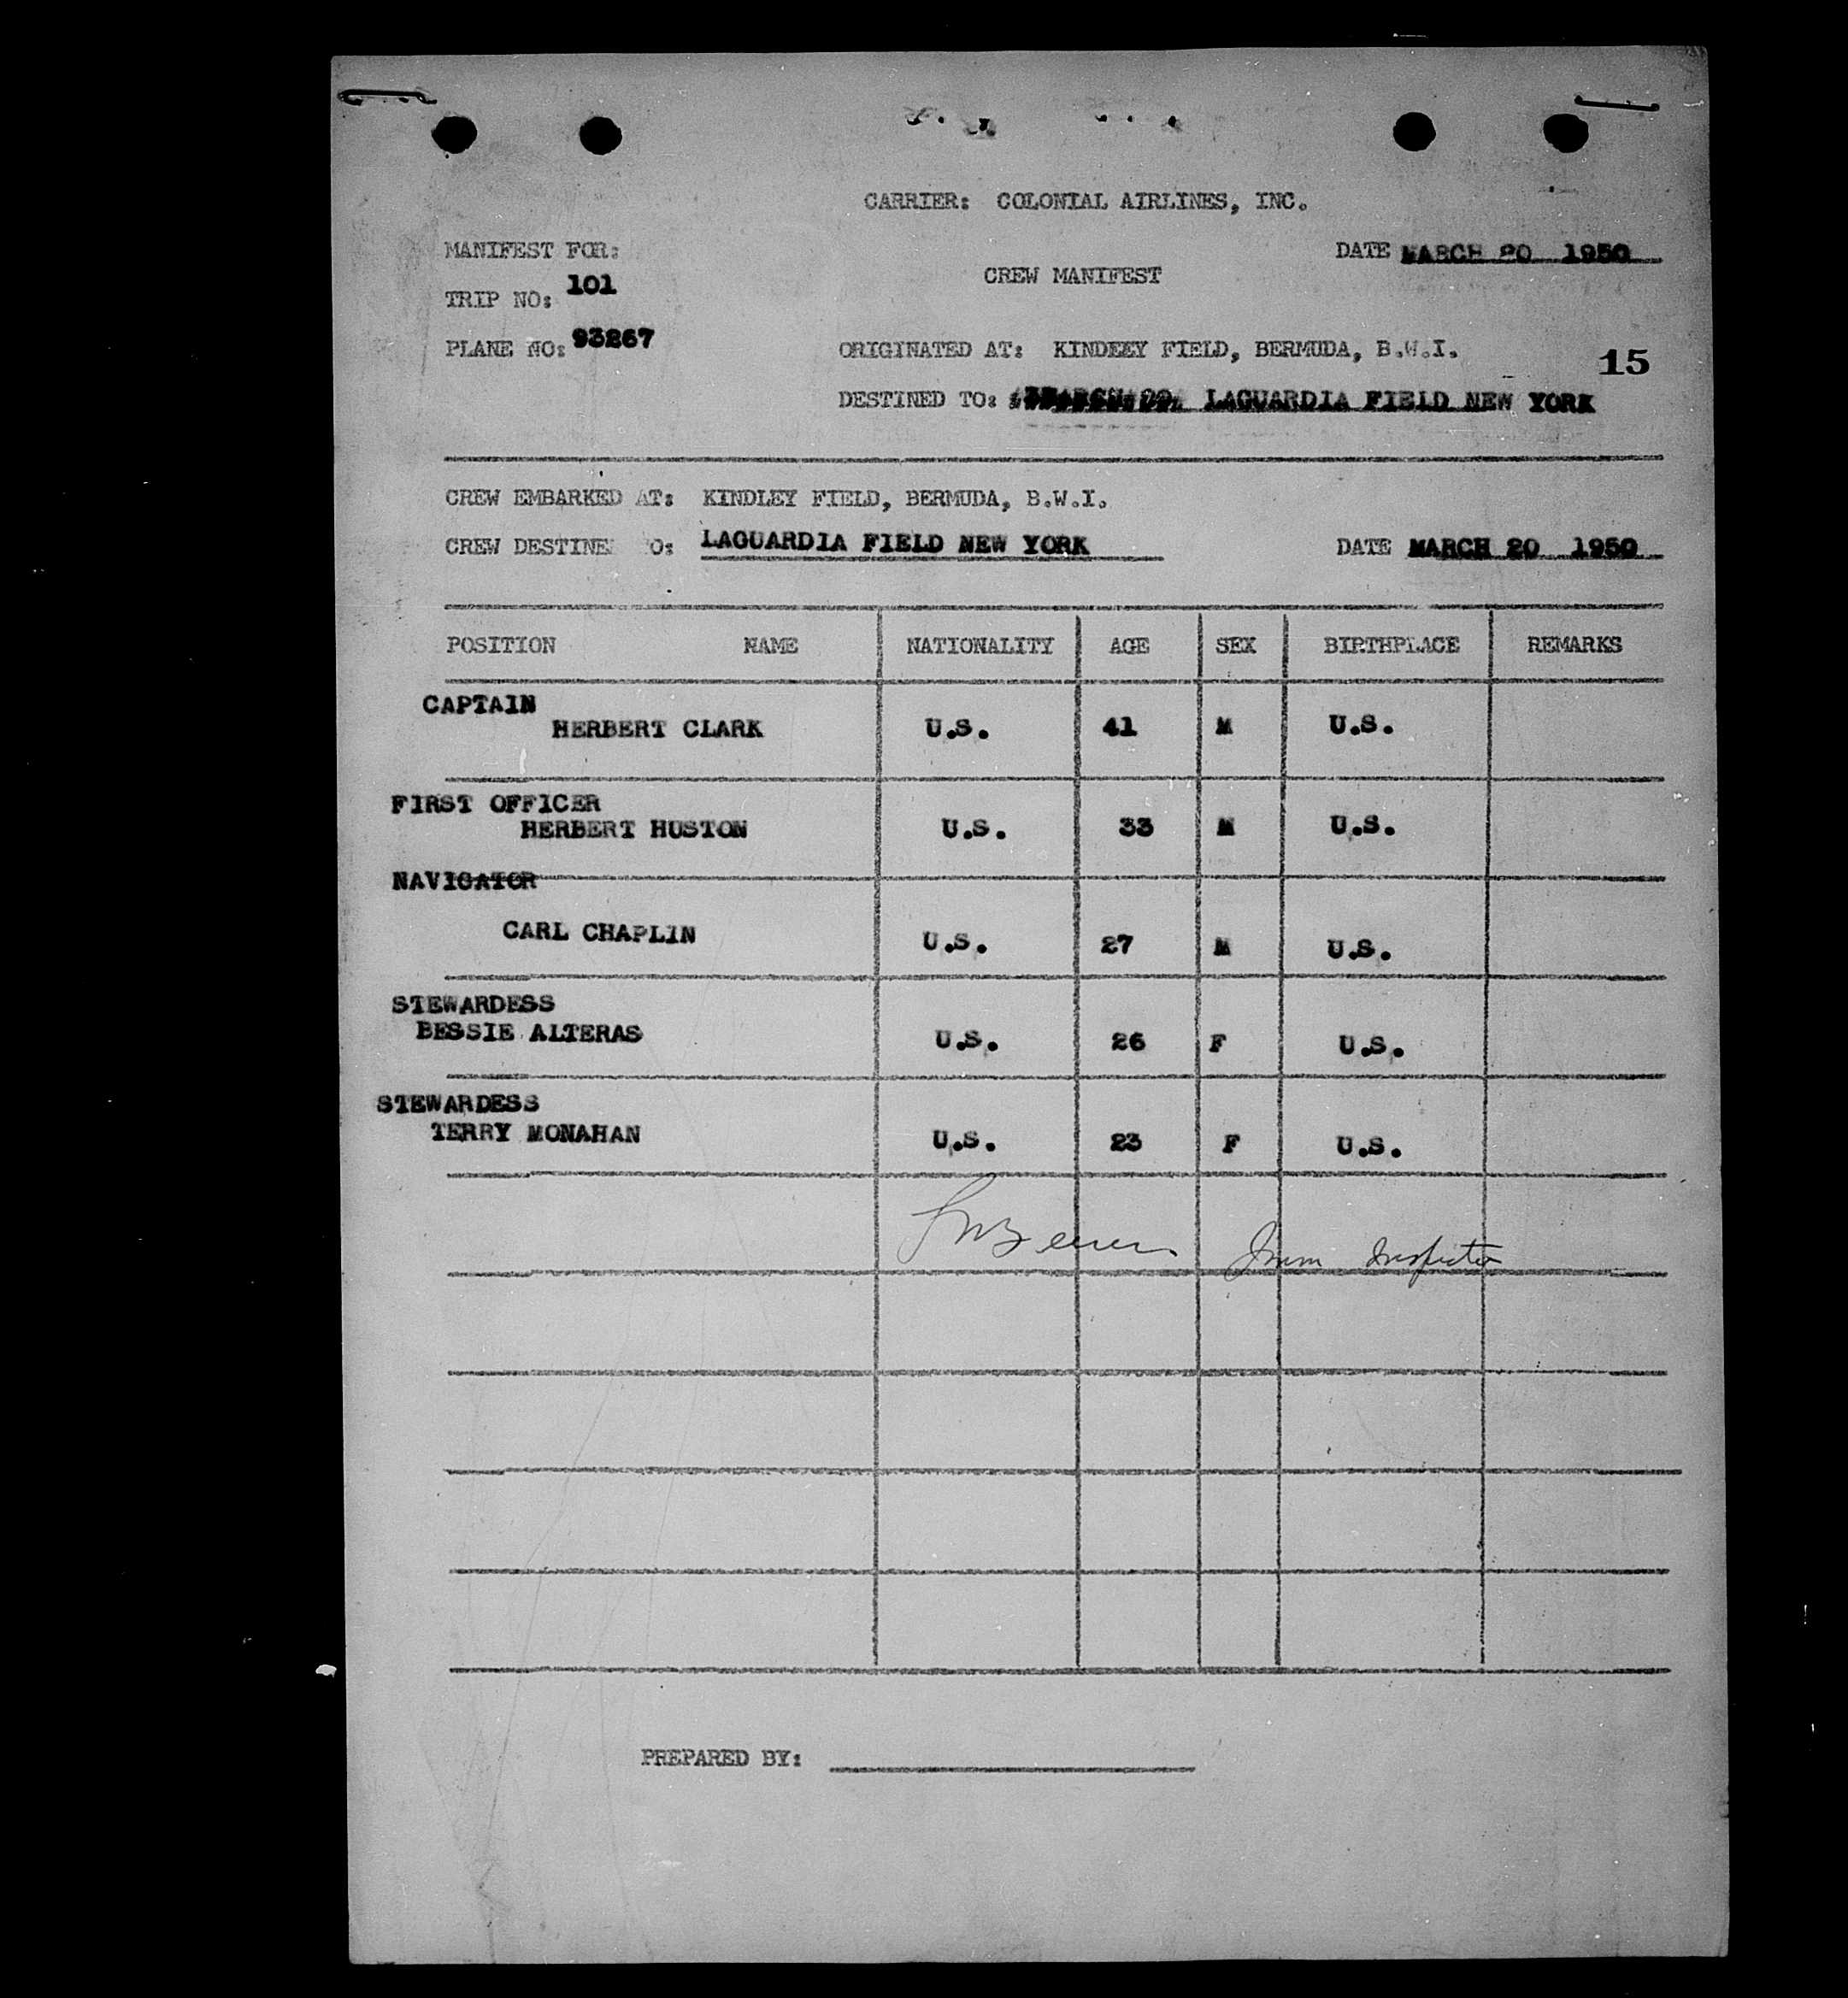 CARRIER: COLONIAL AIRLINES, INC.
MANIFEST FOR:
DATE MARCH 20 1950
CREW MANIFEST
TRIP NO: 101
PLANE NO: 93267
ORIGINATED AT: KINDEEY FIELD, BERMUDA, B.W.I.
15
DESTINED TO: LAGUARDIA FIELD NEW YORK
CREW EMBARKED AT: KINDLEY FIELD, BERMUDA, B.W.I.
CREW DESTINE O: LAGUARDIA FIELD NEW YORK DATE MARCH 20 1950
POSITION NAME NATIONALITY AGE SEX BIRTHPLACE REMARKS
CAPTAIN
HERBERT CLARK U.S. 41 M U.S.
FIRST OFFICER
HERBERT HUSTON U.S. 33 M U.S.
NAVIGATOR
CARL CHAPLIN U.S. 27 M U.S.
STEWARDESS
BESSIE ALTERAS U.S. 26 F U.S.
STEWARDESS
TERRY MONAHAN U.S. 23 F U.S.
Imm Inspector
PREPARED BY: